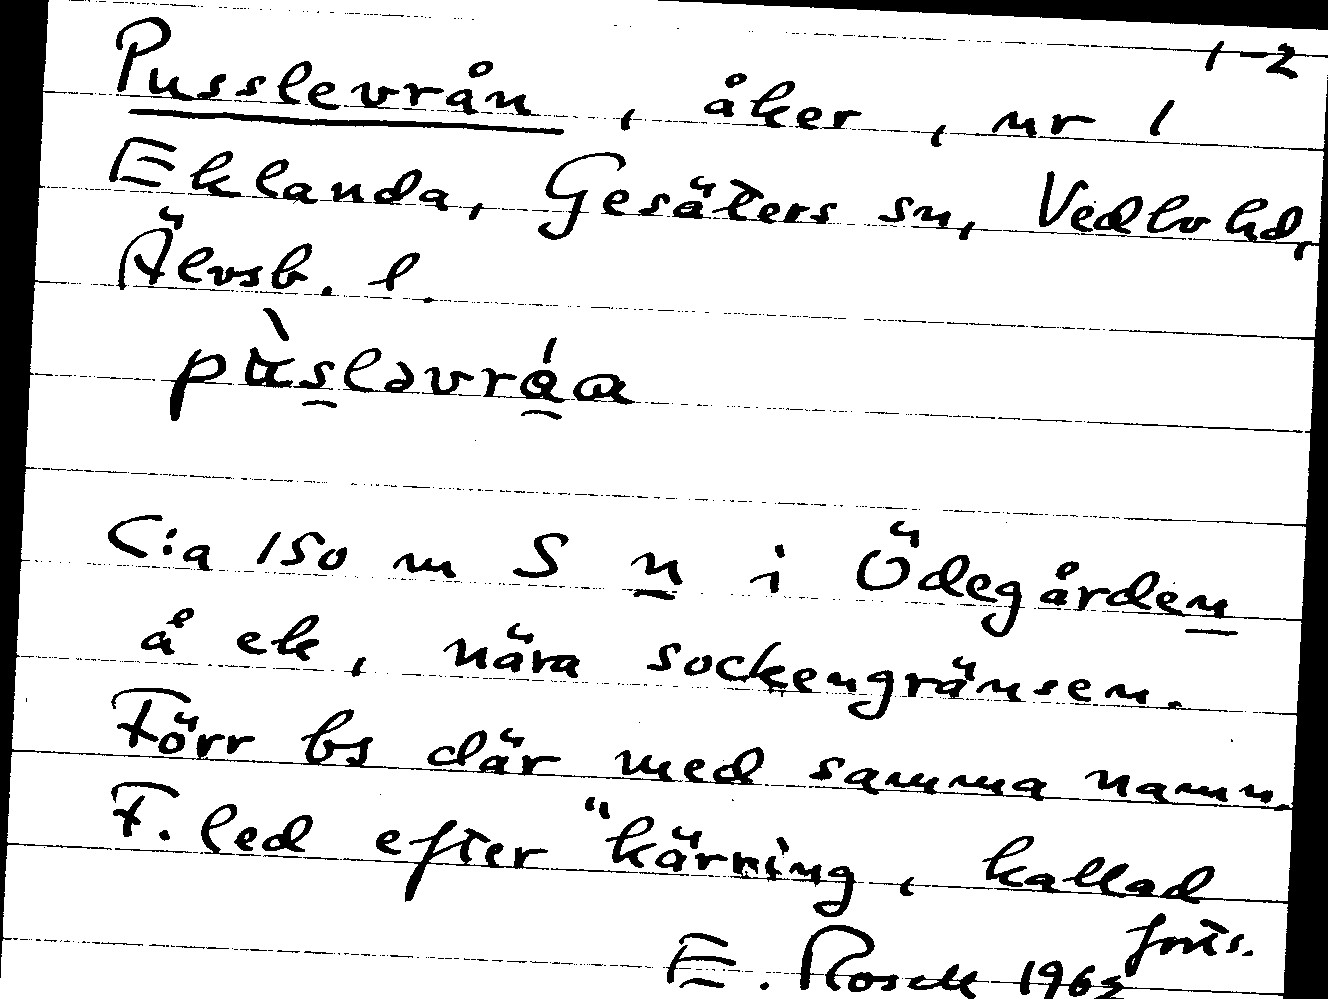 1-2
Pusslevrån, åker, nr 1
Eklanda, Gesäters sn, Vedbo hd,
Älvsb. l.
C:a 150 m S n i Ödegården
å ek, nära sockengränsen.
Förr bs där med samma namn.
F. led efter "kärring, kallad
forts.
E. Rosell